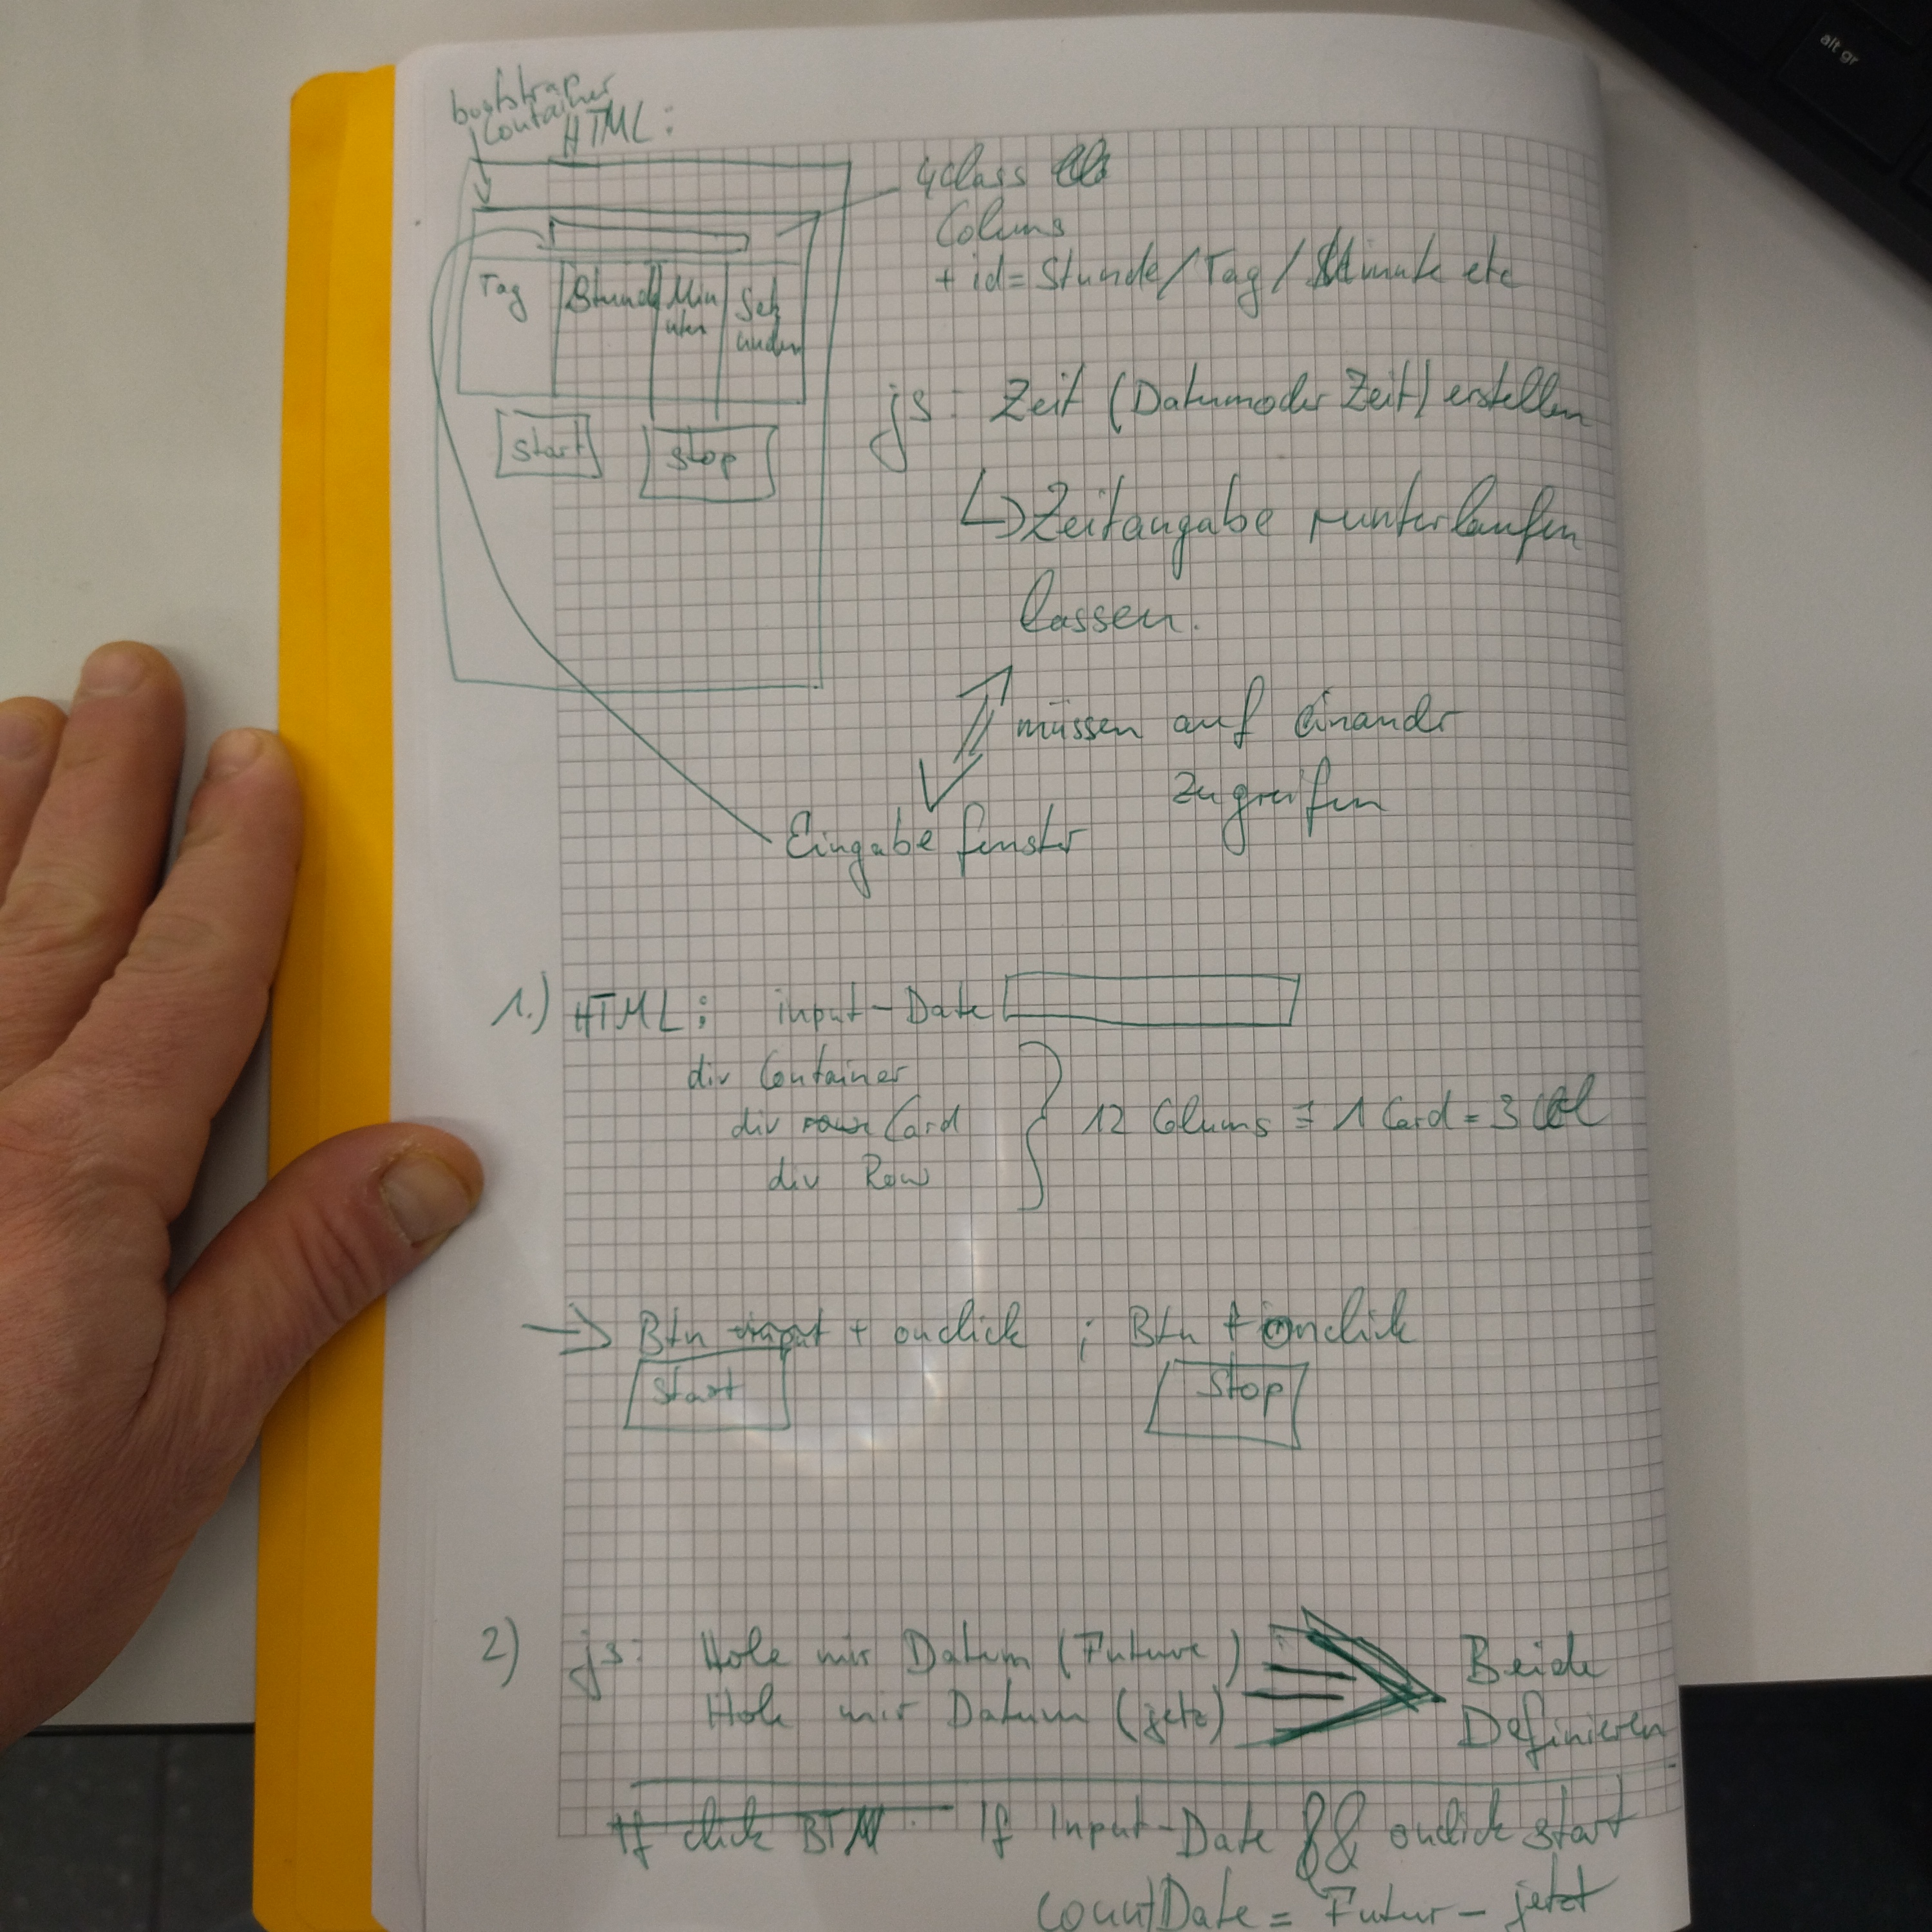 bootstrap
Container
HTML:
4 class
Colums
+ id= Stunde/Tag/Minute etc
Tag
Stund
Min
uten
Sek
unden
Start
Stop
js: Zeit (Datum oder Zeit) erstellen
↳ Zeitangabe runterlaufen
lassen.
müssen auf einander
zugreifen
Eingabe fenster
1.) HTML: input-Date
div Container
div Card
div Row
12 Colums = 1 Card = 3 Col
→ Btn input + onclick ; Btn + onclick
Start
Stop
2) js: Hole mir Datum (Future)
Hole mir Datum (jetz)
Beide
Definieren
If click BTN. If Input-Date && onclick start
countDate = Futur - jetzt